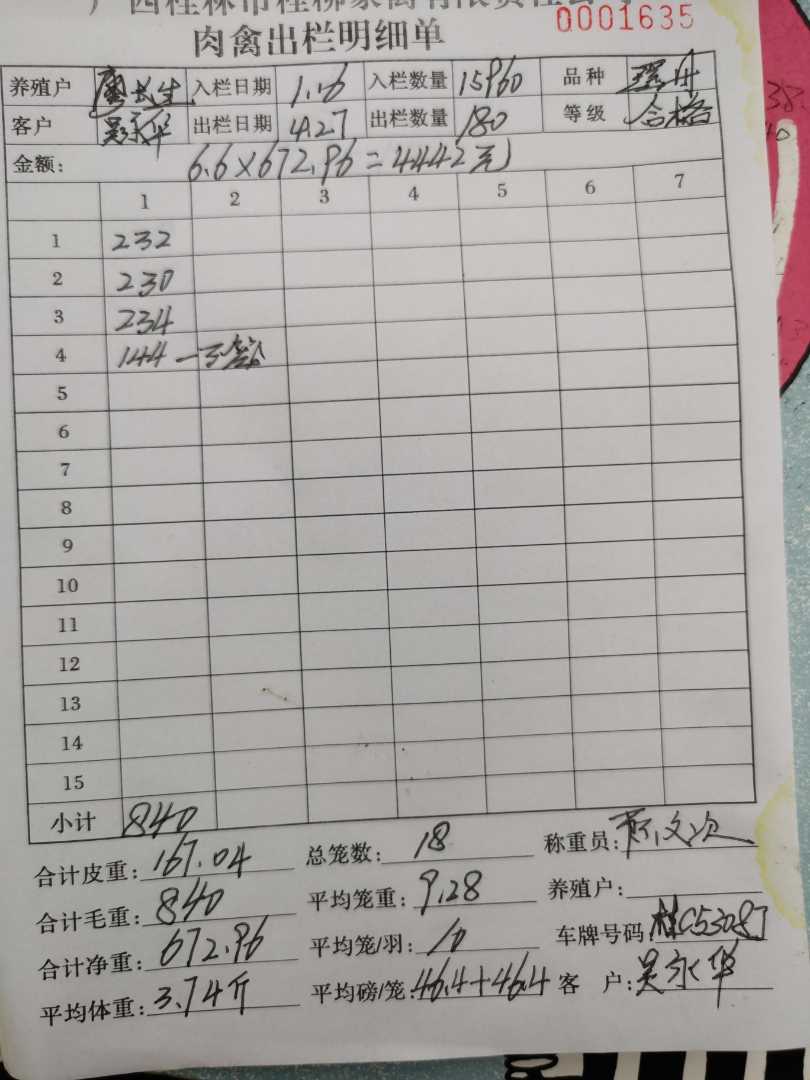 广西桂林市桂柳家禽有限责任公司
0001635
肉禽出栏明细单
养殖户 廖长生 入栏日期 1.16 入栏数量 15960 品种
客户 吴永华 出栏日期 4.27 出栏数量 180 等级 合格
金额: 6.6×672.96=4442元
1 2 3 4 5 6 7
1 232
2 230
3 234
4 144 一3笼
5
6
7
8
9
10
11
12
13
14
15
小计 840
合计皮重: 167.04 总笼数: 18 称重员:
合计毛重: 840 平均笼重: 9.28 养殖户:
合计净重: 672.96 平均笼/羽: 10 车牌号码: 桂C5308J
平均体重: 3.74斤 平均磅/笼: 46.4+46.4 客 户: 吴永华